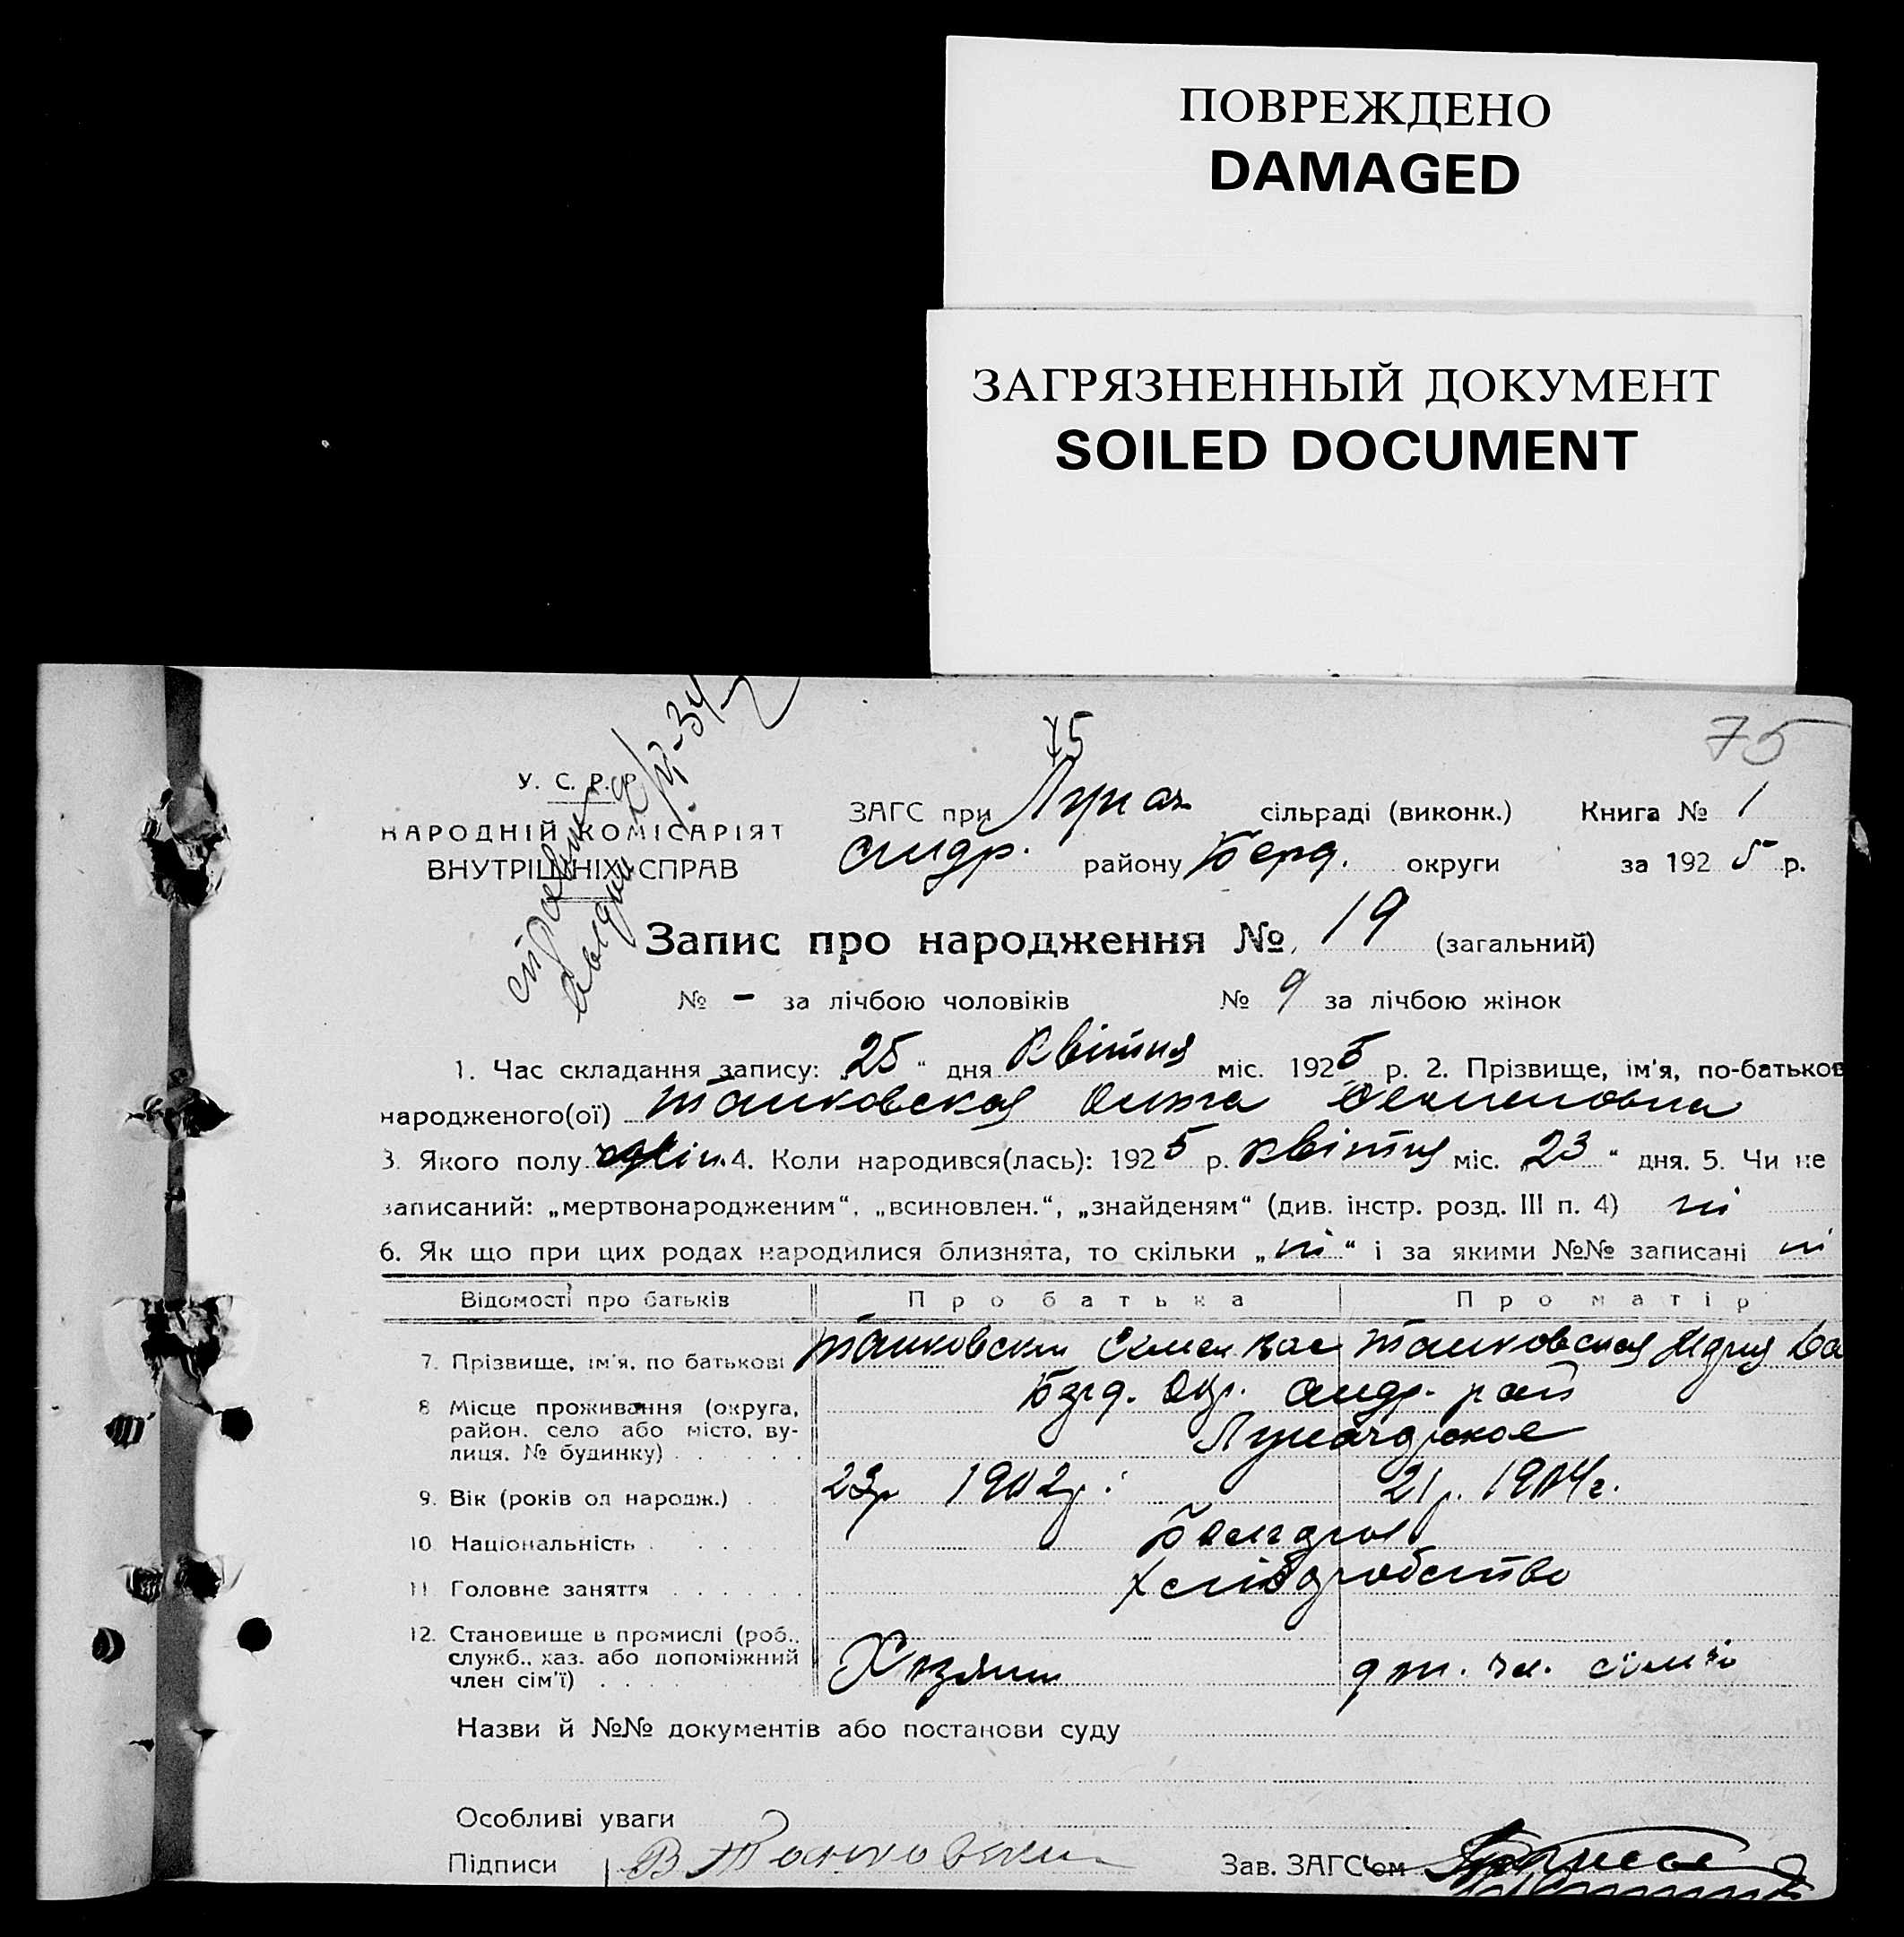 ПОВРЕЖДЕНО
DAMAGED
ЗАГРЯЗНЕННЫЙ ДОКУМЕНТ
SOILED DOCUMENT
75
75
У. С. Р. Р.
НАРОДНІЙ КОМІСАРІЯТ
ВНУТРІШНІХ СПРАВ
ЗАГС при Лунач. сільраді (виконк.) Книга № 1
Андр. району Берд. округи за 1925 р.
Запис про народження № 19 (загальний)
№ - за лічбою чоловіків № 9 за лічбою жінок
1. Час складання запису: „25“ дня квітня міс. 1925 р. 2. Прізвище, ім'я, по-батьков
народженого(ої) Танковская Семеновна
3. Якого полу 4. Коли народився(лась): 1925 р. квітня міс. „23“ дня. 5. Чи не
записаний: „мертвонародженим“, „всиновлен.“, „знайденям“ (див. інстр. розд. III п. 4) ні
6. Як що при цих родах народилися близнята, то скільки „ні“ і за якими №№ записані ні
Відомості про батьків Про батька Про матір
7. Прізвище, ім'я, по батькові Танковски Семен Вас Танковская Мария Ва
8 Місце проживання (округа, Берд. Окр. Андр. рай
район, село або місто, ву- Луначарское
лиця, № будинку)
9. Вік (років од народж.) 23р 1902р. 21р. 1904г.
10. Національність Болгари
11. Головне заняття хліборобство
12. Становище в промислі (роб.,
служб., хаз. або допоміжний Хозяин доп. чл. сімьі
член сім'ї)
Назви й №№ документів або постанови суду
Особливі уваги
Підписи В Танковски Зав. ЗАГС'ом